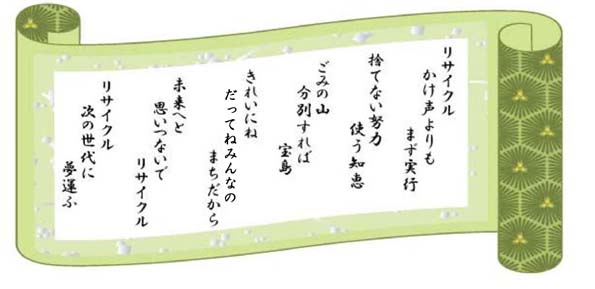 リサイクル
かけ声よりも
まず実行
捨てない努力
使う知恵
ごみの山
分別すれば
宝島
きれいにね
だってねみんなの
まちだから
未来へと
思いつないで
リサイクル
リサイクル
次の世代に
夢運ぶ